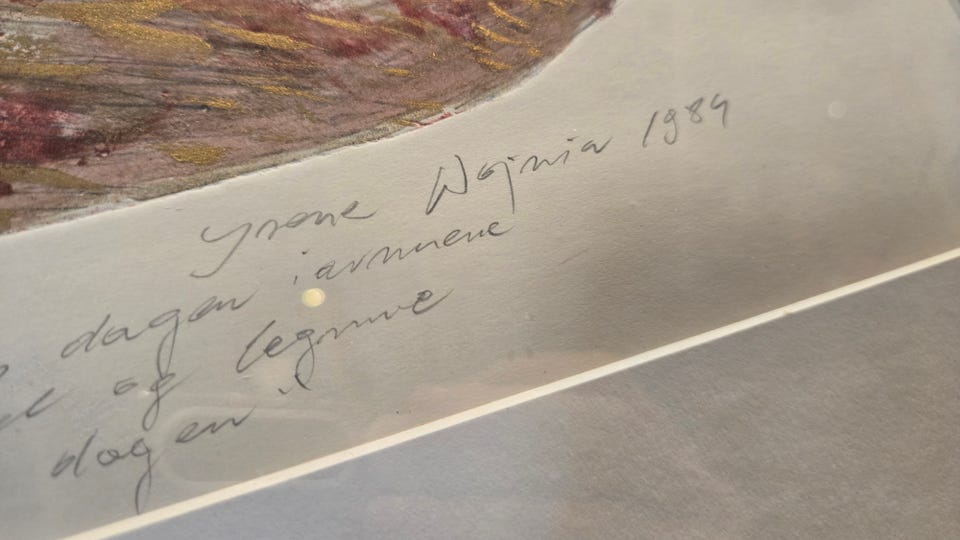 Yrene Wojnia 1989
dagen i armene
og legnwe
dagen i